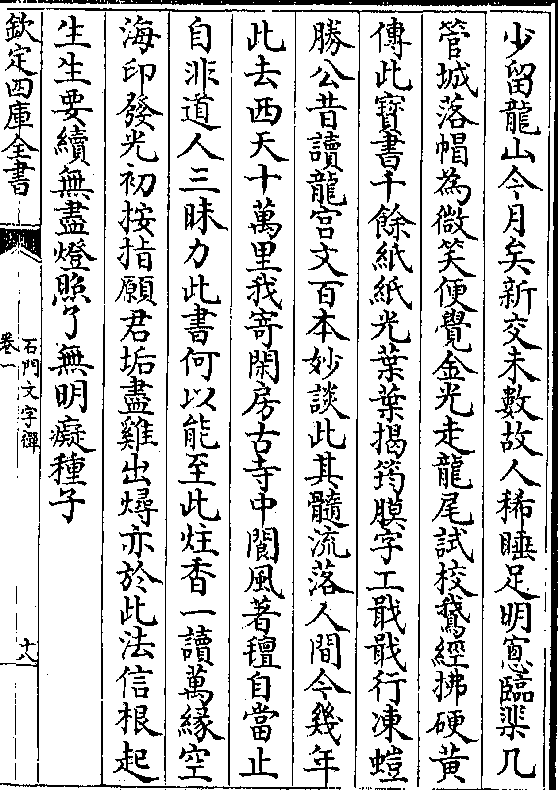 少留龍山今月矣新交未數故人稀睡足明窻臨棐几
管城落帽為微笑便覺金光走龍尾試校鵞經拂硬黄
傳此寳書千餘紙紙光葉葉掲筠膜字工戢戢行凍螘
勝公昔讀龍宫文百本妙談此其髓流落人間今幾年
此去西天十萬里我寄閑房古寺中閬風著穜自當止
自非道人三昧力此書何以能至此炷香一讀萬緣空
海印發光初按指願君垢盡雞出燖亦於此法信根起
生生要續無盡燈照了無明癡種子
欽定四庫全書
石門文字禪
卷一
十八